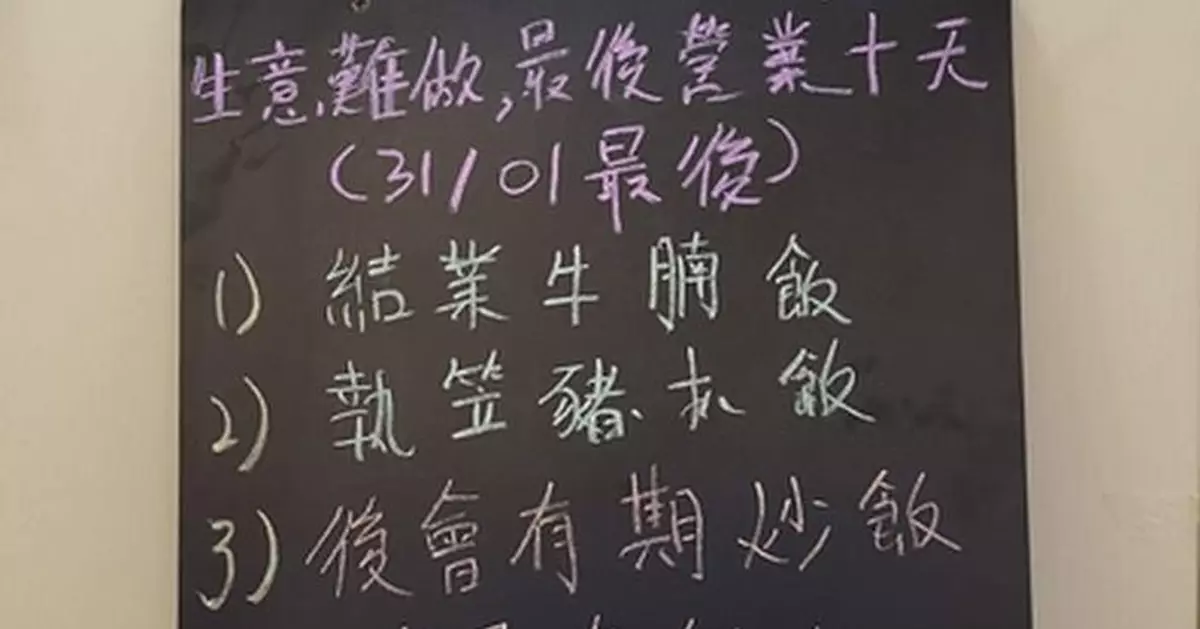 生意難做,最後營業十天
(31/01最後)
1) 結業牛腩飯
2) 執笠豬扒飯
3) 後會有期炒飯